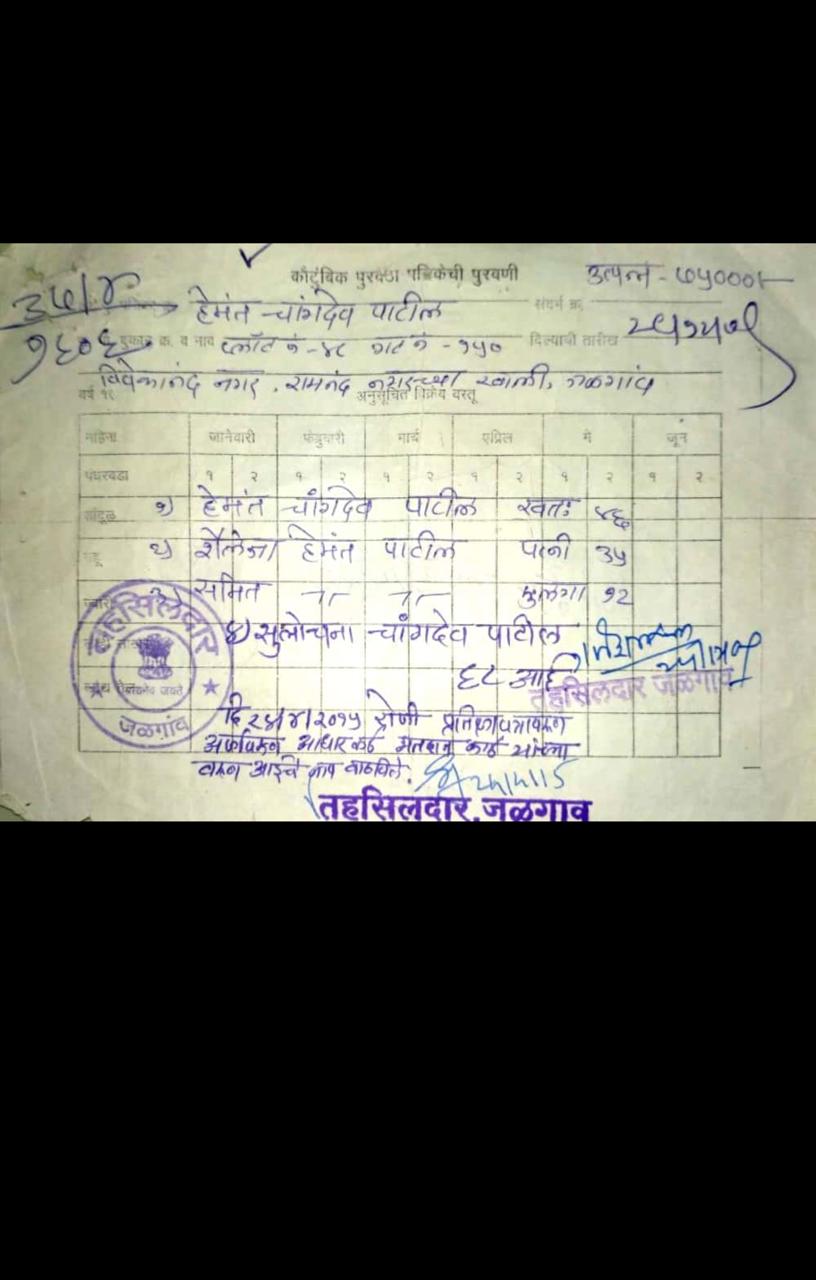 कौटुंबिक पुरवठा पत्रिकेची पुरवणी
उत्पन्न - ७५०००/-
३७/४
हेमंत चांगदेव पाटील
संदर्भ क्र.
१६०६ दुकान क्र. व नाव प्लॉट नं - ४८ गट नं - १५० दिल्याची तारीख
विवेकानंद नगर, रामनंद नगरच्या खाली, जळगांव
वर्ष १९ अनुसूचित विक्रेय वस्तू
महिना जानेवारी फेब्रुवारी मार्च एप्रिल मे जून
पंधरवडा १ २ १ २ १ २ १ २ १ २ १ २
तांदूळ १) हेमंत चांगदेव पाटील स्वतः ४६
गहू २) शैलेजा हेमंत पाटील पत्नी ३५
ज्वारी समित -॥- -॥- मुलगा १२
४) सुलोचना चांगदेव पाटील
६८ आई
तहसिलदार जळगांव
तहसिलदार
सत्यमेव जयते
जळगांव
दि २४/४/२०१५ रोजी प्रतिज्ञापत्रावरून
अर्जावरून आधार कार्ड मतदान कार्ड यांच्या
वरून आईचे नाव वाढविले.
तहसिलदार, जळगाव